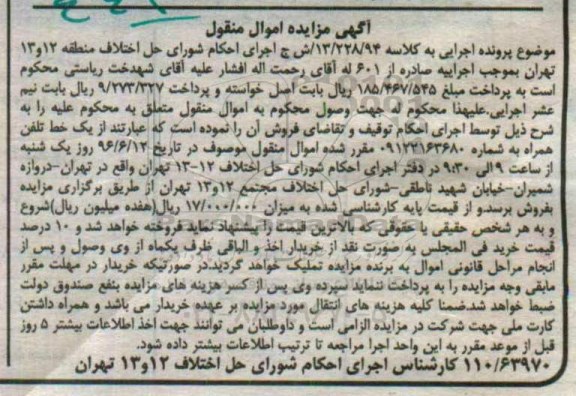 آگهی مزایده اموال منقول
موضوع پرونده اجرایی به کلاسه ۱۳/۲۲۸/۹۴/ش ج اجرای احکام شورای حل اختلاف منطقه ۱۲و۱۳
تهران بموجب اجراییه صادره از ۶۰۱ له آقای رحمت اله افشار علیه آقای شهدخت ریاستی محکوم
است به پرداخت مبلغ ۱۸۵/۴۶۷/۵۴۵ ریال بابت اصل خواسته و پرداخت ۹/۲۷۳/۳۲۷ ریال بابت نیم
عشر اجرایی.علیهذا محکوم له جهت وصول محکوم به اموال منقول متعلق به محکوم علیه را به
شرح ذیل توسط اجرای احکام توقیف و تقاضای فروش آن را نموده است که عبارتند از یک خط تلفن
همراه به شماره ۰۹۱۲۲۱۶۳۶۸۰ مقرر شده اموال منقول موصوف در تاریخ ۹۶/۶/۱۲ روز یک شنبه
از ساعت ۹ الی ۹:۳۰ در دفتر اجرای احکام شورای حل اختلاف ۱۲-۱۳ تهران واقع در تهران-دروازه
شمیران-خیابان شهید ناطقی-شورای حل اختلاف مجتمع ۱۲و۱۳ تهران از طریق برگزاری مزایده
بفروش برسد.و از قیمت پایه کارشناسی شده به میزان ۱۷/۰۰۰/۰۰۰ ریال(هفده میلیون ریال)شروع
و به هر شخص حقیقی یا حقوقی که بالاترین قیمت را پیشنهاد نماید فروخته خواهد شد و ۱۰ درصد
قیمت خرید فی المجلس به صورت نقد از خریدار اخذ و الباقی ظرف یکماه از وی وصول و پس از
انجام مراحل قانونی اموال به برنده مزایده تملیک خواهد گردید.در صورتیکه خریدار در مهلت مقرر
مابقی وجه مزایده را به پرداخت ننماید سپرده وی پس از کسر هزینه های مزایده بنفع صندوق دولت
ضبط خواهد شد.ضمنا کلیه هزینه های انتقال مورد مزایده بر عهده خریدار می باشد و همراه داشتن
کارت ملی جهت شرکت در مزایده الزامی است و داوطلبان می توانند جهت اخذ اطلاعات بیشتر ۵ روز
قبل از موعد مقرر به این واحد اجرا مراجعه تا ترتیب اطلاعات بیشتر داده شود.
۱۱۰/۶۳۹۷۰ کارشناس اجرای احکام شورای حل اختلاف ۱۲و۱۳ تهران